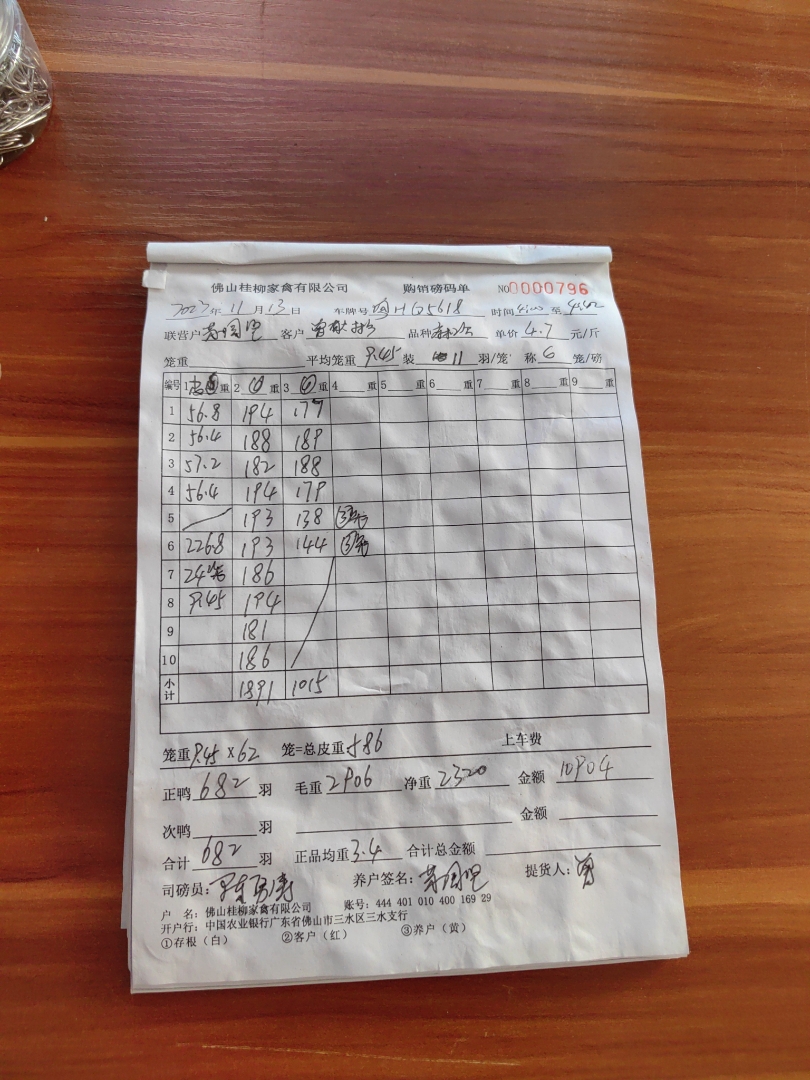 佛山桂柳家禽有限公司 购销磅码单 NO0000796
2023年11月13日 车牌号 HQ5618 时间 至 4:42
联营户 客户 品种 单价 4.7 元/斤
笼重 平均笼重 9.45 装 11 羽/笼 称 6 笼/磅
编号 1 重 2 重 3 重 4 重 5 重 6 重 7 重 8 重 9 重
1 56.8 194 177
2 56.4 188 189
3 57.2 182 188
4 56.4 194 179
5 193 138
6 226.8 193 144
7 24 186
8 9.45 194
9 181
10 186
小计 1891 1015
笼重 9.45 x 62 笼=总皮重 586 上车费
正鸭 682 羽 毛重 2906 净重 2320 金额 10904
次鸭 羽 金额
合计 682 羽 正品均重 3.4 合计总金额
司磅员: 养户签名: 提货人: 曾
户 名: 佛山桂柳家禽有限公司 账号: 444 401 010 400 169 29
开户行: 中国农业银行广东省佛山市三水区三水支行
①存根(白) ②客户(红) ③养户(黄)